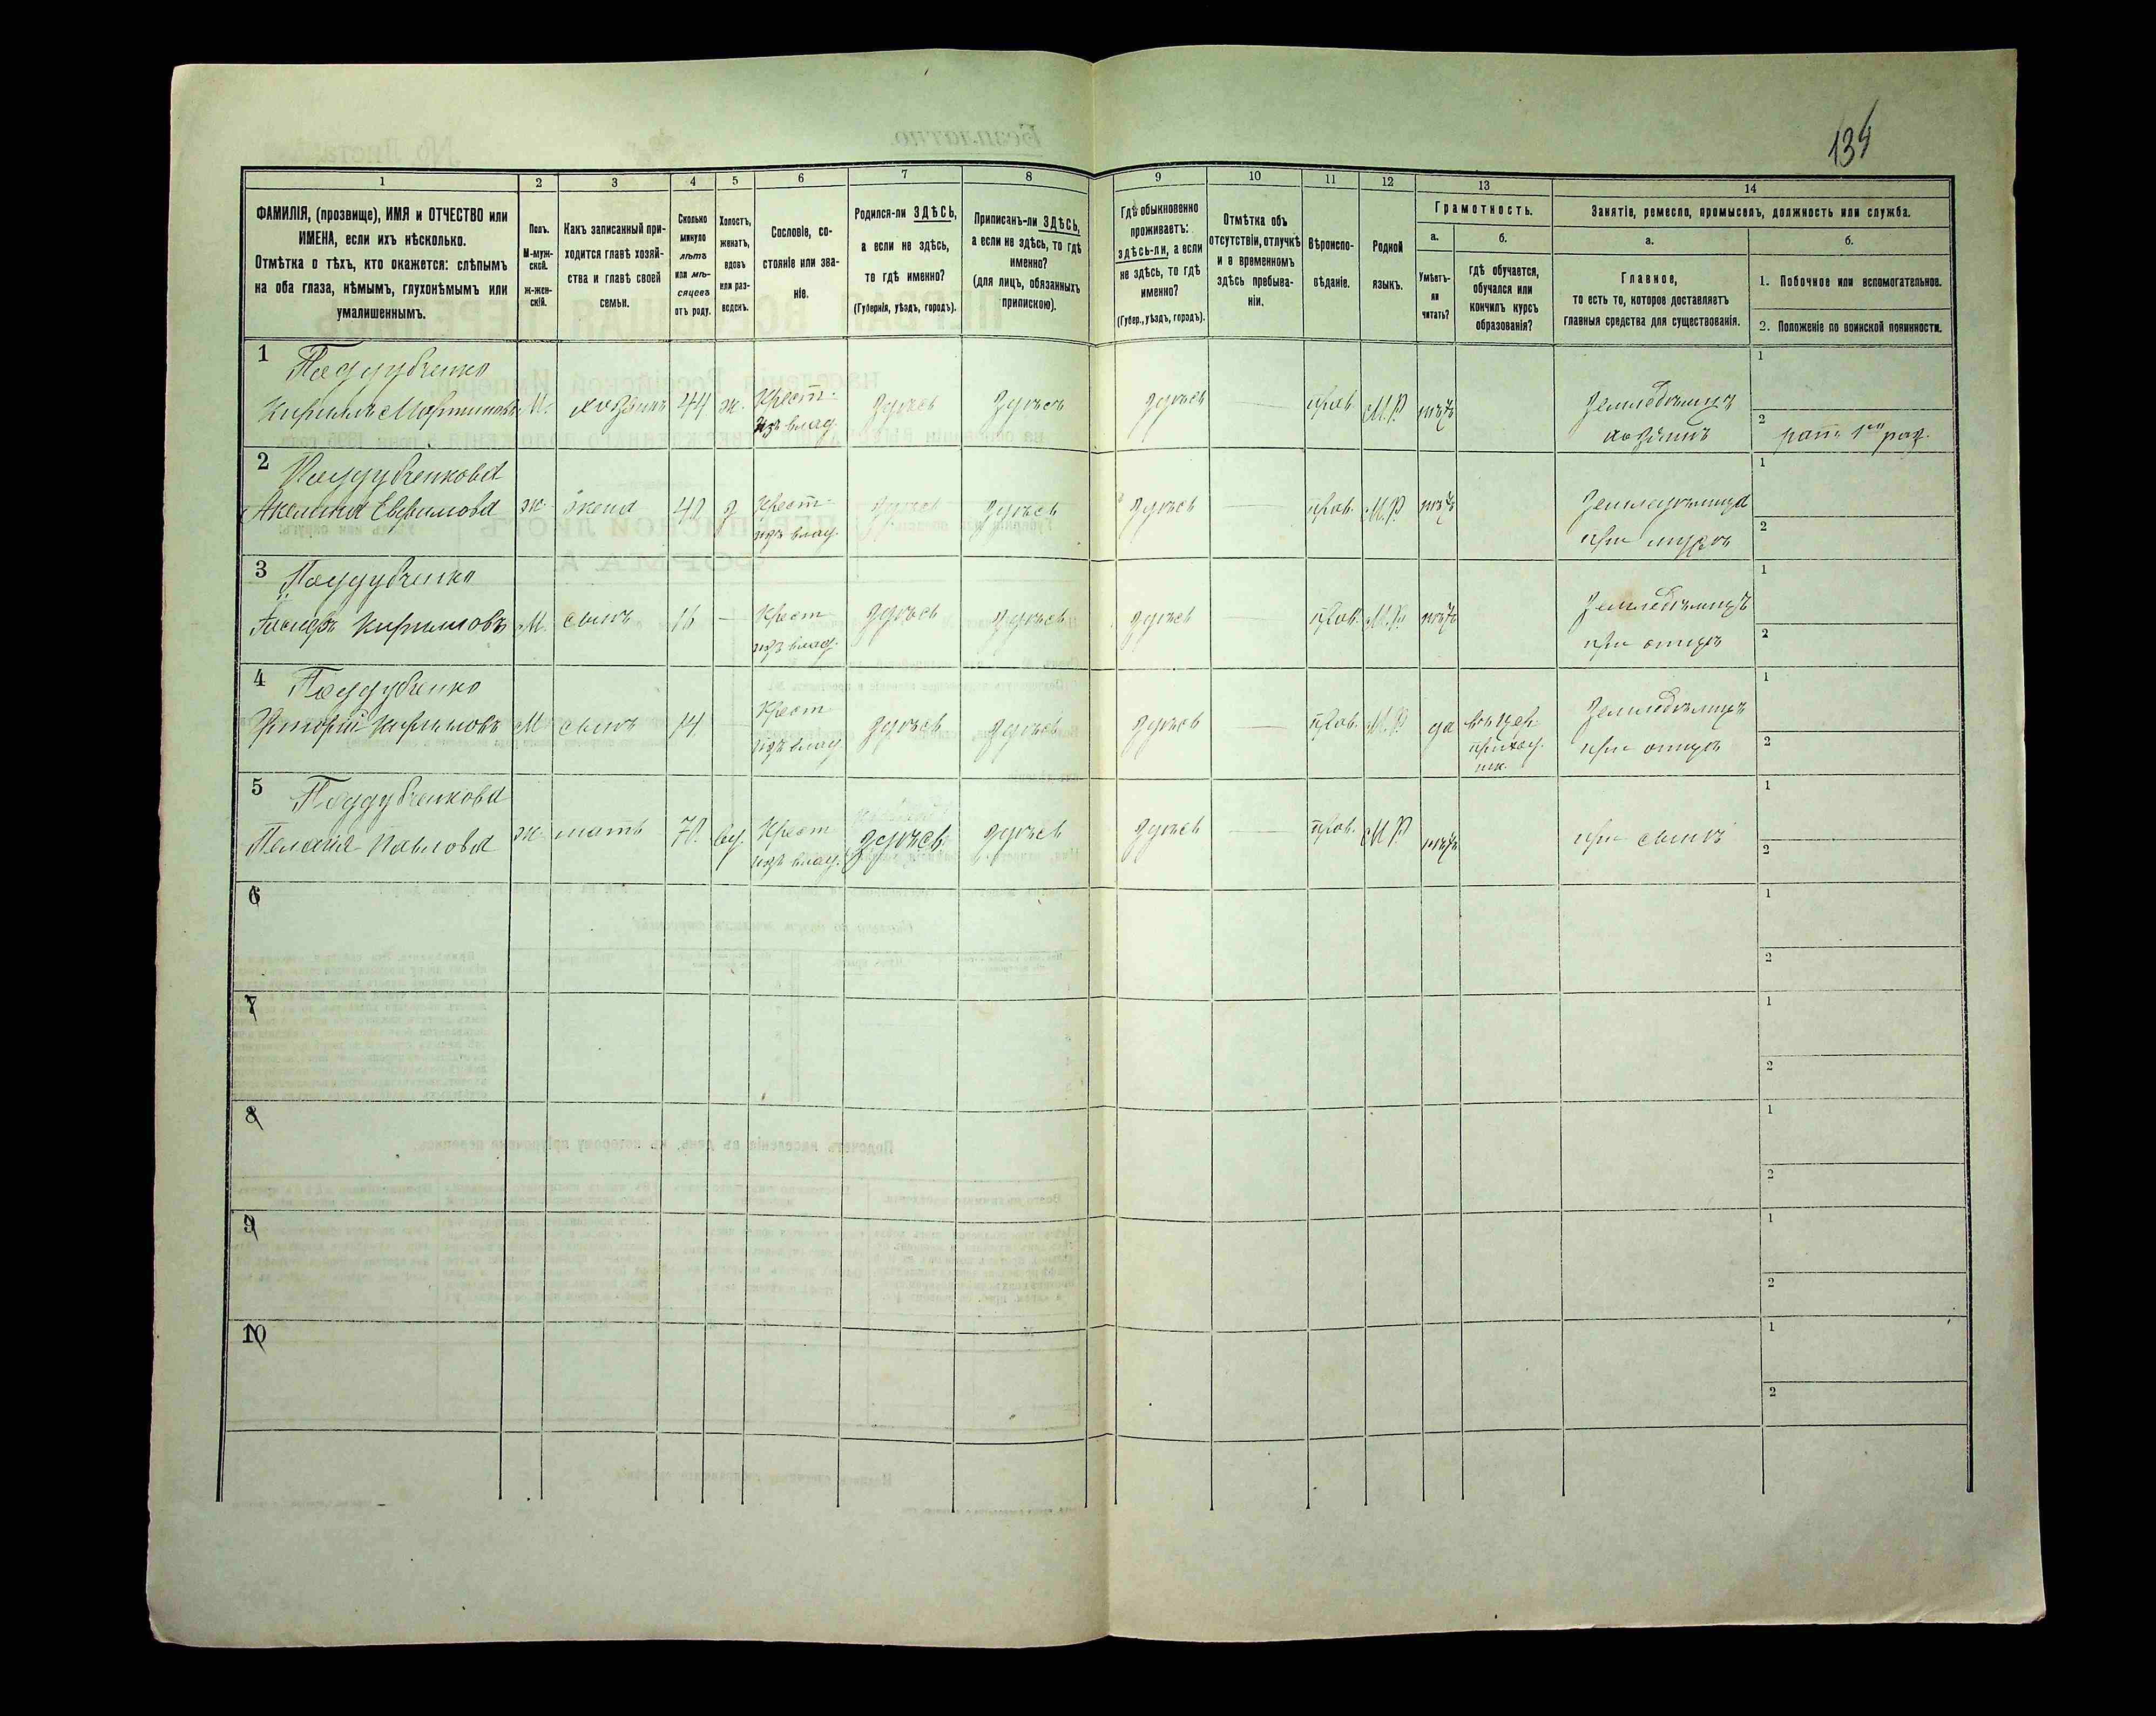 134
1 2 3 4 5 6 7 8 9 10 11 12 13 14
ФАМИЛІЯ, (прозвище), ИМЯ и ОТЧЕСТВО или
ИМЕНА, если ихъ нѣсколько.
Отмѣтка о тѣхъ, кто окажется: слѣпымъ
на оба глаза, нѣмымъ, глухонѣмымъ или
умалишеннымъ.
Полъ.
М-муж-
ской.
ж-жен-
скій.
Какъ записанный при-
ходится главѣ хозяй-
ства и главѣ своей
семьи.
Сколько
минуло
лѣтъ
или мѣ-
сяцевъ
отъ роду.
Холостъ,
женатъ,
вдовъ
или раз-
веденъ.
Сословіе, со-
стояніе или зва-
ніе.
Родился-ли ЗДѢСЬ,
а если не здѣсь,
то гдѣ именно?
(Губернія, уѣздъ, городъ).
Приписанъ-ли ЗДѢСЬ,
а если не здѣсь, то гдѣ
именно?
(для лицъ, обязанныхъ
припискою).
Гдѣ обыкновенно
проживаетъ:
здѣсь-ли, а если
не здѣсь, то гдѣ
именно?
(Губер., уѣздъ, городъ).
Отмѣтка объ
отсутствіи, отлучкѣ
и о временномъ
здѣсь пребыва-
ніи.
Вѣроиспо-
вѣданіе.
Родной
языкъ.
Грамотность.
а.
Умѣетъ-
ли
читать?
б.
гдѣ обучается,
обучался или
кончилъ курсъ
образованія?
Занятіе, ремесло, промыселъ, должность или служба.
а.
Главное,
то есть то, которое доставляетъ
главныя средства для существованія.
б.
1. Побочное или вспомогательное.
2. Положеніе по воинской повинности.
1 Поддубченко
Кириллъ Мартиновъ М. хозяинъ 44 ж. Крест. изъ влад. здѣсь здѣсь здѣсь — прав. М.Р. нѣтъ Земледѣлецъ хозяинъ 1 2 рат. 1го раз.
2 Поддубченкова
Акелина Евфимова ж. жена з Крест. изъ влад. здѣсь здѣсь здѣсь — прав. М.Р. нѣтъ Земледѣлица при мужѣ 1 2
3 Поддубченко
Кирилловъ М. сынъ 16 — Крест изъ влад. здѣсь здѣсь здѣсь — прав. М.Р. нѣтъ Земледѣлецъ при отцѣ 1 2
4 Поддубченко
Григорій Кирилловъ М сынъ 14 Крест изъ влад. здѣсь здѣсь здѣсь — прав. М.Р. да въ цер. приход. шк. Земледѣлецъ при отцѣ 1 2
5 Поддубченкова
Пелагія Павлова ж. мать вд. Крест изъ влад. здѣсь здѣсь здѣсь — прав. М.Р. нѣтъ при сынѣ 1 2
6 1 2
7 1 2
8 1 2
9 1 2
10 1 2